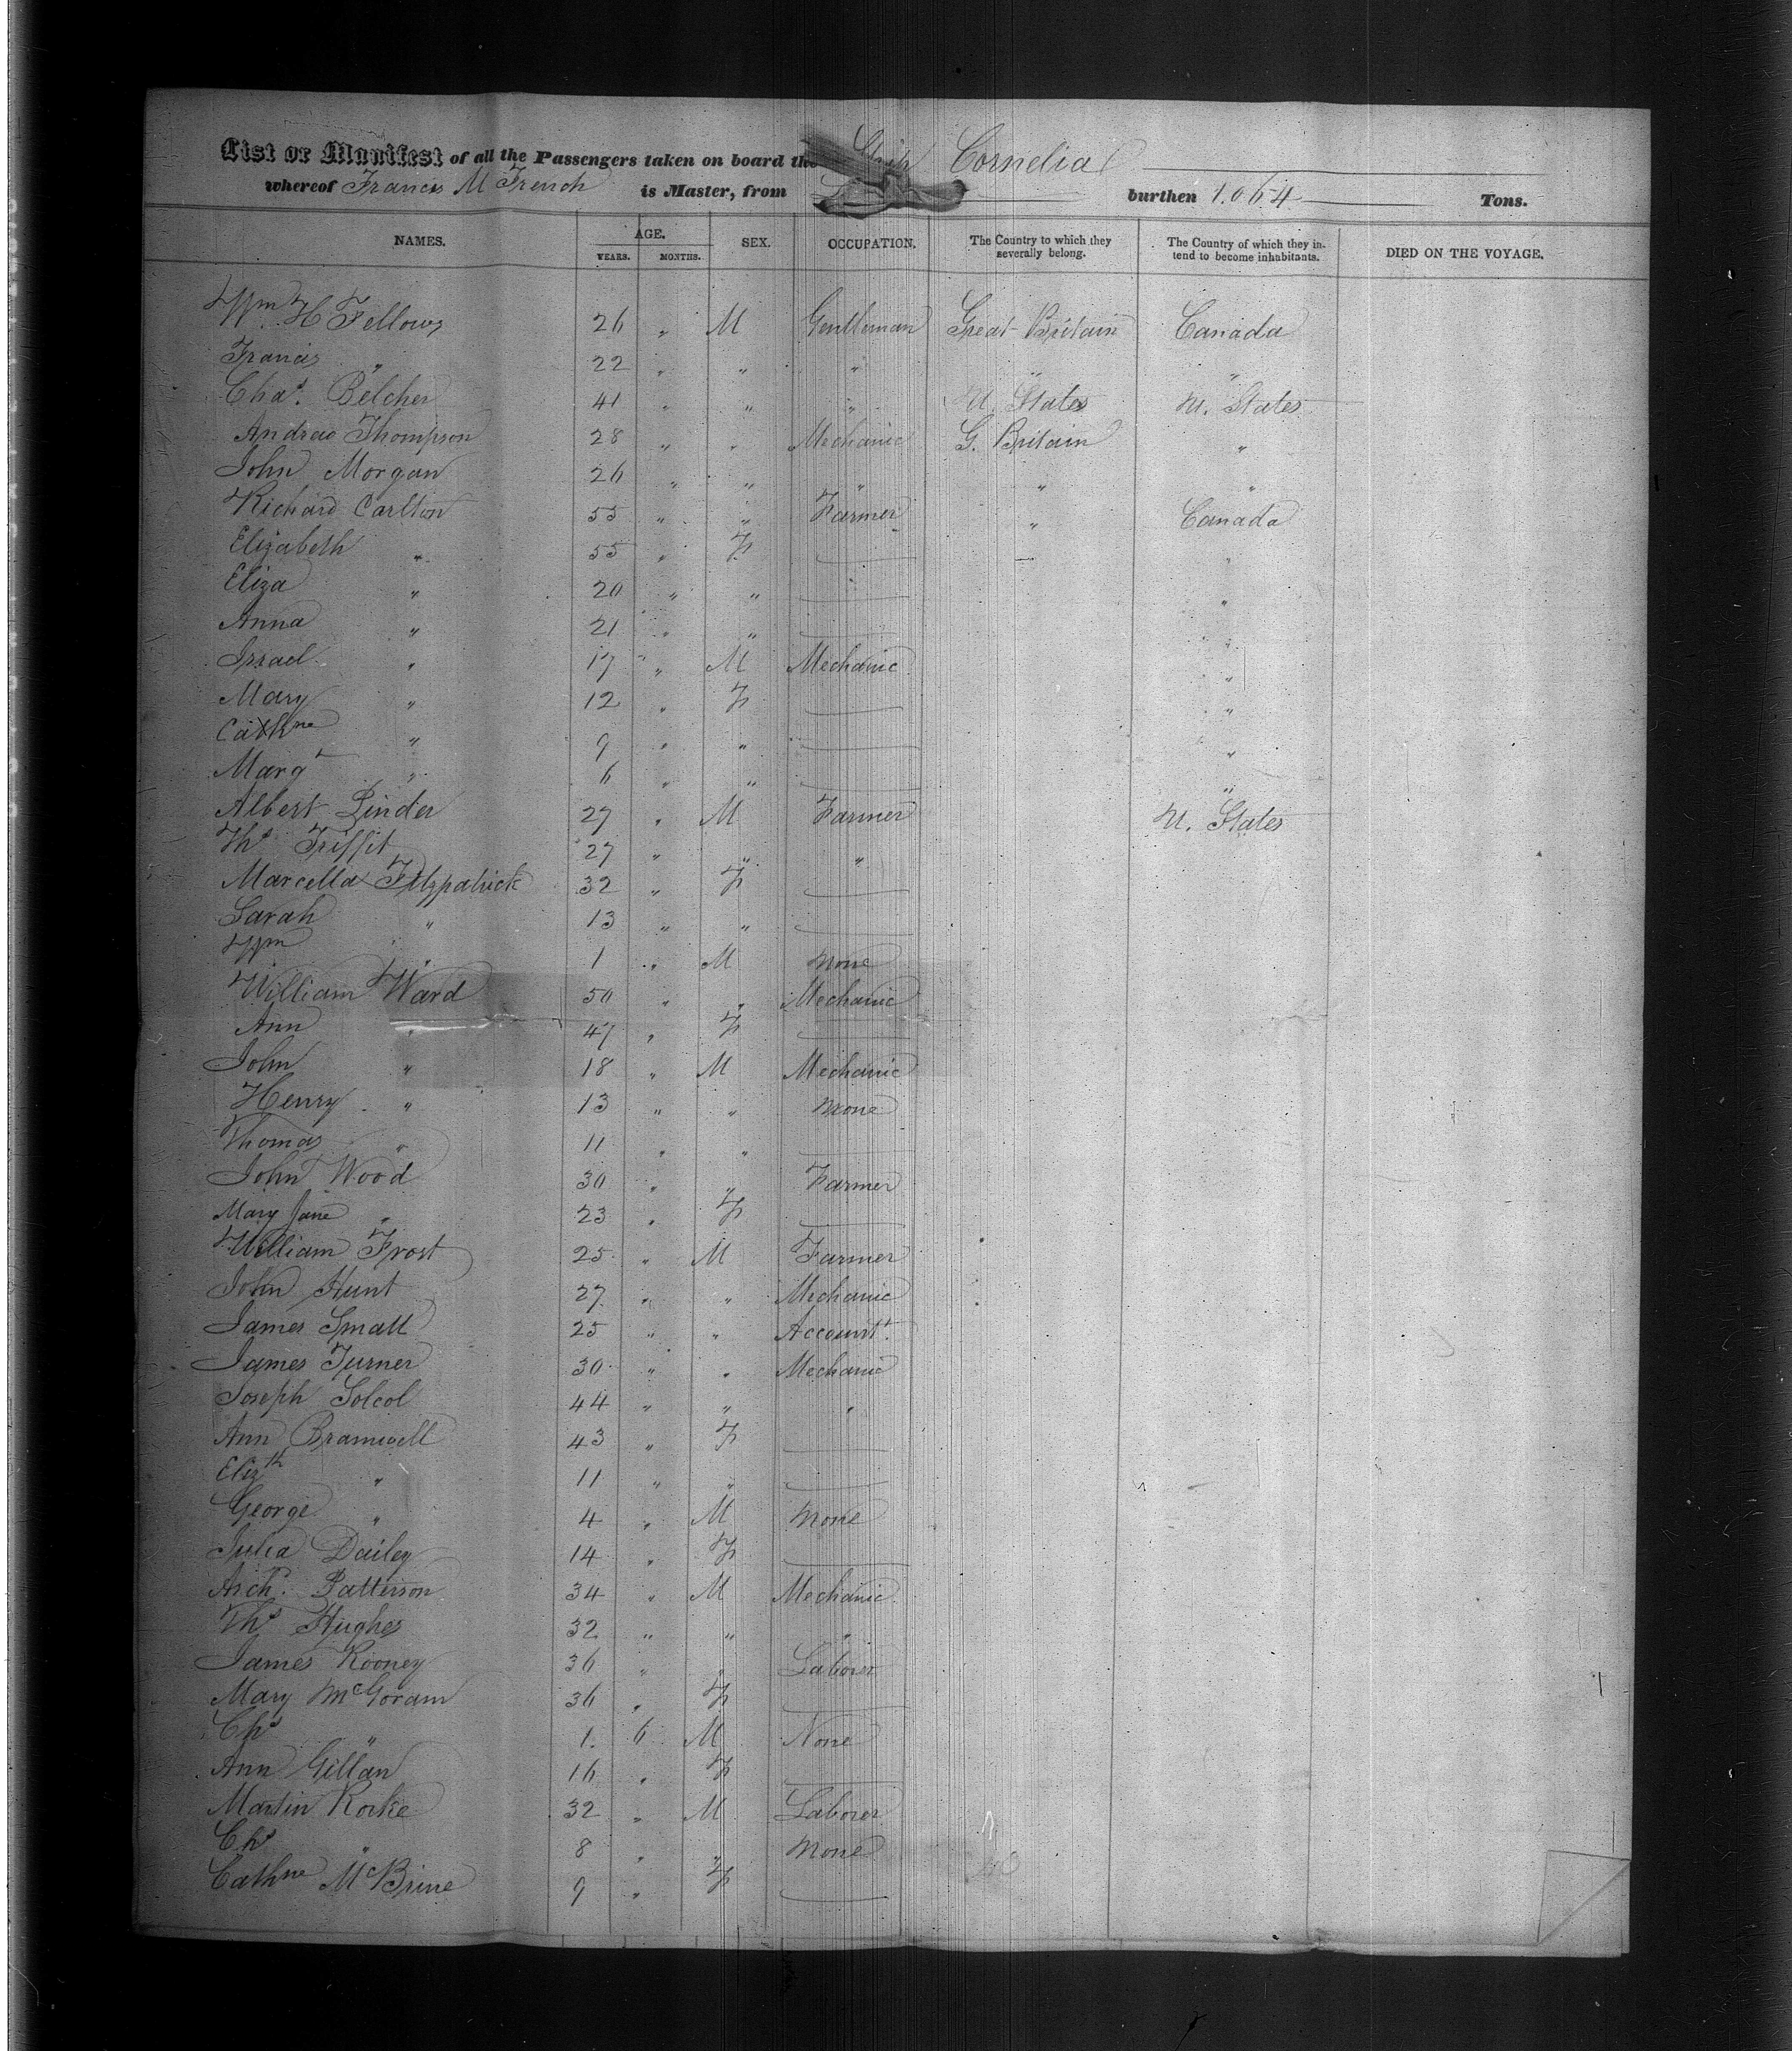 List or Manifest of all the Passengers taken on board the Ship Cornelia
whereof Francis M French is Master, from burthen 1.064 Tons.
NAMES. AGE. YEARS. MONTHS. SEX. OCCUPATION. The Country to which they severally belong. The Country of which they intend to become inhabitants. DIED ON THE VOYAGE.
Wm H Fellows 26 " M Gentleman Great Britain Canada
Francis " 22 " " " " "
Chas. Belcher 41 " " " U. States U. States
Andrew Thompson 28 " " Mechanic G. Britain "
John Morgan 26 " " " " "
Richard Carlton 55 " " Farmer " Canada
Elizabeth " 55 " F — — "
Eliza " 20 " " — "
Anna " 21 " " — "
Israel " 17 " M Mechanic "
Mary " 12 " F — "
Cathne " 9 " " — "
Margt " 6 " " — "
Albert Pinder 27 " M Farmer U. States
Ths Triffit 27 " " "
Marcella Fitzpatrick 32 " F —
Sarah " 13 " " —
Wm " 1 " M None
William Ward 50 " " Mechanic
Ann " 47 " F —
John " 18 " M Mechanic
Henry " 13 " " None
Thomas " 11 " " —
John Wood 30 " " Farmer
Mary Jane " 23 " F —
William Frost 25 " M Farmer
John Hunt 27 " " Mechanic
James Small 25 " " Accountt.
James Turner 30 " " Mechanic
Joseph Solcol 44 " " "
Ann Bramwell 43 " F —
Elizth " 11 " " —
George " 4 " M None
Julia Dailey 14 " F —
Archd. Patterson 34 " M Mechanic
Ths Hughes 32 " " "
James Rooney 36 " " Laborer
Mary McGoram 36 " F —
Chs " 1. 6 M None
Ann Gillan 16 " F —
Martin Rorke 32 " M Laborer
Chs " 8 " " None
Cathne McBrine 9 " F —